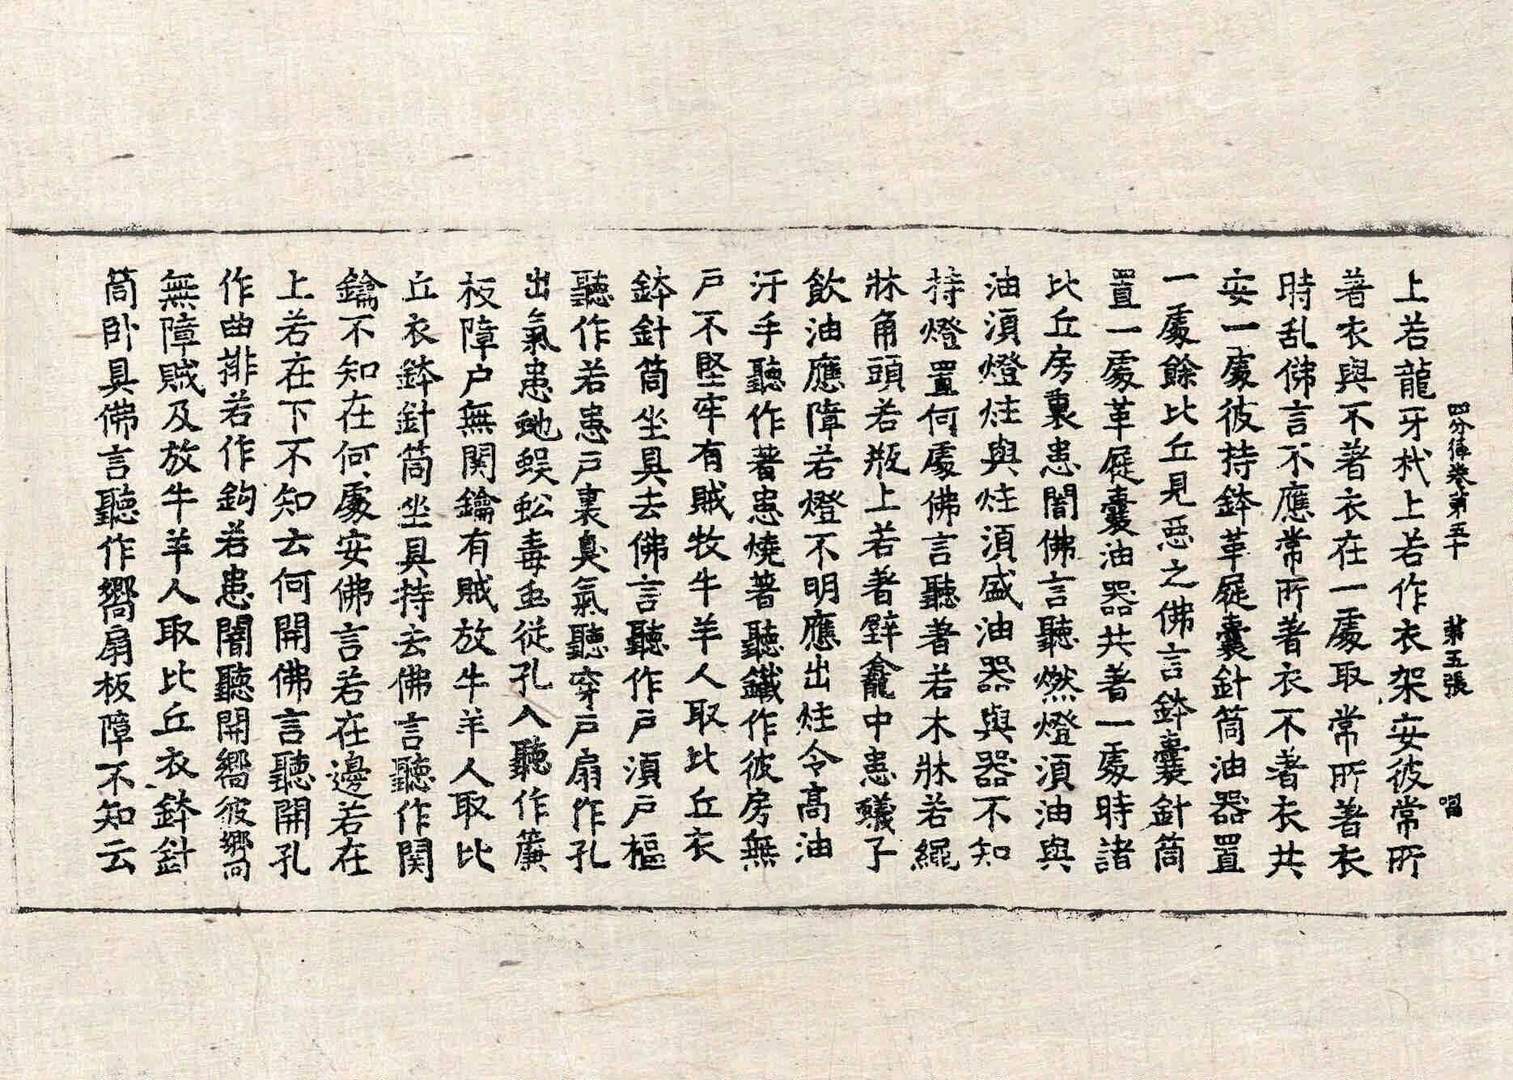 四分律卷第五十 第五張 習
上若龍牙杙上若作衣架安彼常所
著衣與不著衣在一處取常所著衣
時乱佛言不應常所著衣不著衣共
安一處彼持鉢革屣囊針筒油器置
一處餘比丘見惡之佛言鉢囊針筒
置一處革屣囊油器共著一處時諸
比丘房裏患闇佛言聽燃燈須油與
油須燈炷與炷須盛油器與器不知
持燈置何處佛言聽著若木牀若繩
牀角頭若瓶上若著壁龕中患蟻子
飲油應障若燈不明應出炷令高油
汙手聽作著患燒著聽鐵作彼房無
戸不堅牢有賊牧牛羊人取比丘衣
鉢針筒坐具去佛言聽作戸須戸樞
聽作若患戸裏臭氣聽穿戸扇作孔
出氣患虵蜈蚣毒虫從孔入聽作簾
板障户無関鑰有賊放牛羊人取比
丘衣鉢針筒坐具持去佛言聽作関
鑰不知在何處安佛言若在邊若在
上若在下不知云何開佛言聽開孔
作曲排若作鉤若患闇聽開嚮彼嚮
無障賊及放牛羊人取比丘衣鉢針
筒卧具佛言聽作嚮扇板障不知云